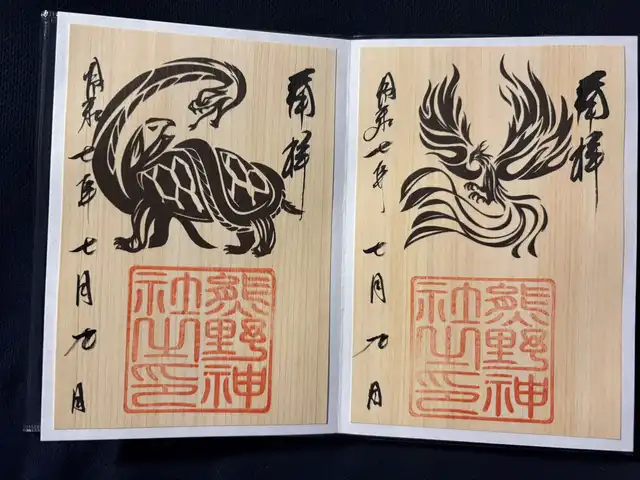 奉拝
熊野神
社之印
令和七年 七月九日
奉拝
熊野神
社之印
令和七年 七月九日